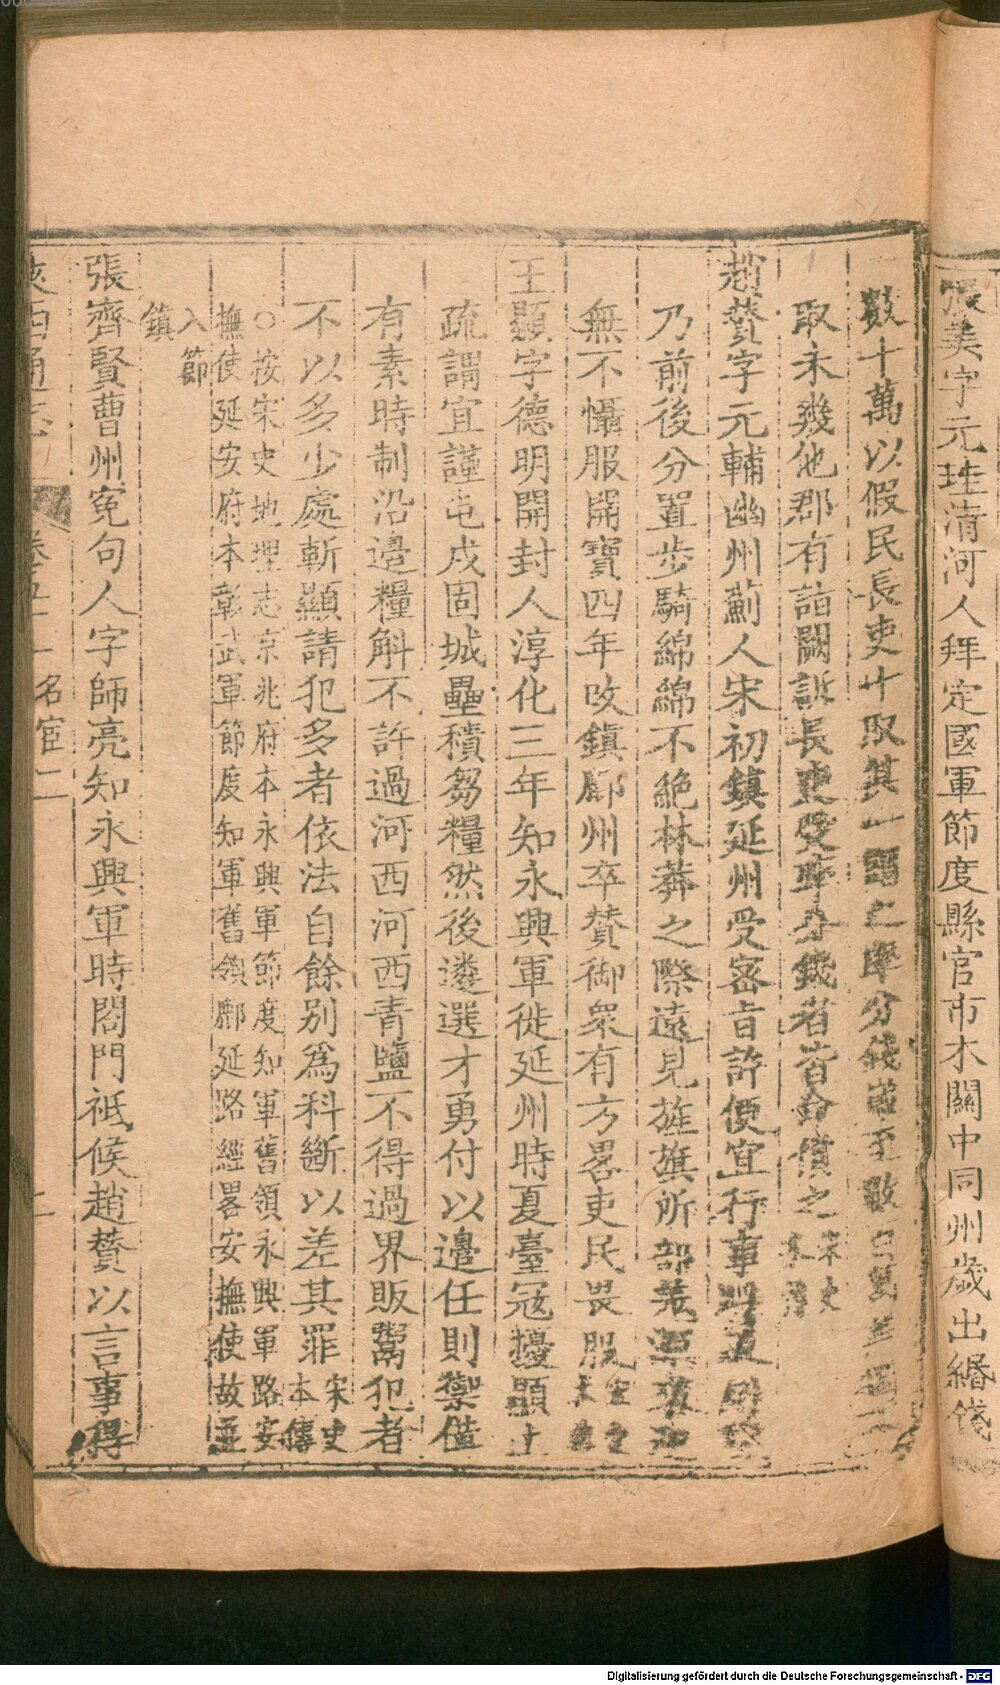 張美字元珪清河人拜定國軍節度縣官市木關中同州歲出緡錢
數十萬以假民長吏十取其一謂之率分錢歲至數百萬美獨不
取未幾他郡有詣闕訴長吏受率分錢者皆命償之 宋史
本傳
趙贊字元輔幽州薊人宋初鎮延州受密旨許便宜行事
乃前後分置步騎綿綿不絶林莽之際遠見旌旗所部羌渾
無不懾服開寶四年改鎮鄜州卒贊御衆有方畧吏民畏服
王顯字德明開封人淳化三年知永興軍徙延州時夏臺寇擾顯上
疏謂宜謹屯戍固城壘積芻糧然後遴選才勇付以邊任則禦備
有素時制沿邊糧斛不許過河西河西青鹽不得過界販鬻犯者
不以多少處斬顯請犯多者依法自餘別爲科斷以差其罪 宋史
本傳
○按宋史地理志京兆府本永興軍節度知軍舊領永興軍路安
撫使延安府本彰武軍節度知軍舊領鄜延路經畧安撫使故並
入節
鎮
張齊賢曹州寃句人字師亮知永興軍時閤門祗候趙贊以言事得
陝西通志 卷五十一 名宦二
Digitalisierung gefördert durch die Deutsche Forschungsgemeinschaft - DFG